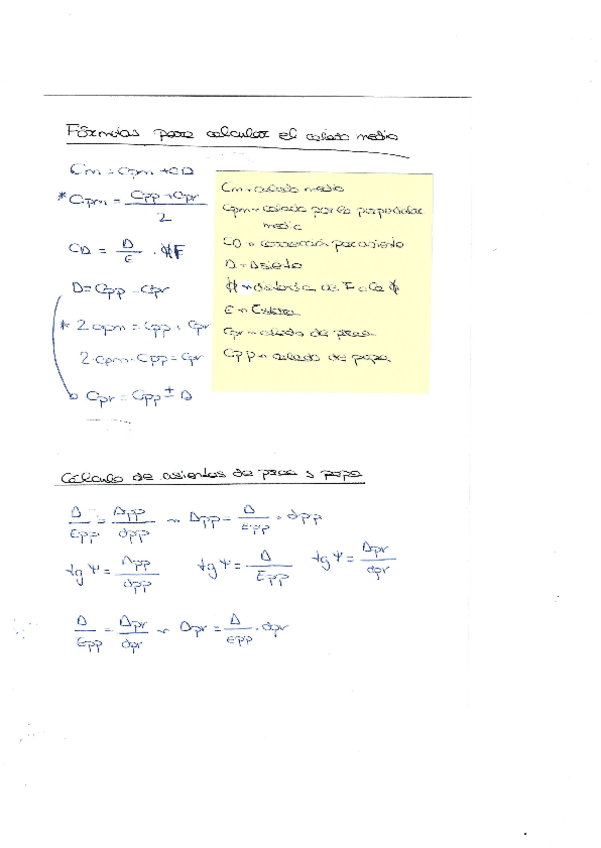 Fórmulas para calcular el calado medio
Cm = Cpm + CD
* Cpm = (Cpp + Cpr) / 2
CD = A / E · ⦻F
A = Cpp - Cpr
* 2 · cpm = Cpp + Cpr
2 · cpm - Cpp = Cpr
Cpr = Cpp ± A
Cm = calado medio
Cpm = calado por la perpendicular
media
CD = corrección por asiento
A = Asiento
⦻ = distancia de F a la ⦻
E = Eslora
Cpr = calado de proa
Cpp = calado de popa
Cálculo de asientos de proa y popa
A / Epp = App / dpp ~ App = A / Epp · dpp
tg Ψ = App / dpp tg Ψ = A / Epp tg Ψ = Apr / dpr
A / Epp = Apr / dpr ~ Apr = A / epp · dpr